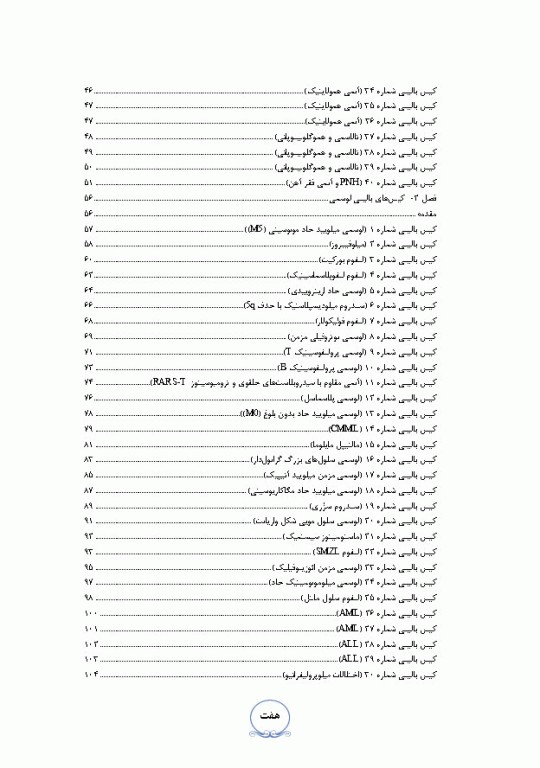 کیس بالینی شماره ۳۴ (آنمی همولایتیک) ۴۶
کیس بالینی شماره ۳۵ (آنمی همولایتیک) ۴۷
کیس بالینی شماره ۳۶ (آنمی همولایتیک) ۴۷
کیس بالینی شماره ۳۷ (تالاسمی و هموگلوبینوپاتی) ۴۸
کیس بالینی شماره ۳۸ (تالاسمی و هموگلوبینوپاتی) ۴۹
کیس بالینی شماره ۳۹ (تالاسمی و هموگلوبینوپاتی) ۵۰
کیس بالینی شماره ۴۰ (PNH و آنمی فقر آهن) ۵۱
فصل ۲- کیس‌های بالینی لوسمی ۵۶
مقدمه ۵۶
کیس بالینی شماره ۱ (لوسمی میلوییدی حاد مونوسیتی (M5)) ۵۷
کیس بالینی شماره ۲ (میلوفیبروز) ۵۸
کیس بالینی شماره ۳ (لنفوم بورکیت) ۶۰
کیس بالینی شماره ۴ (لنفوم لنفوپلاسماسیتیک) ۶۳
کیس بالینی شماره ۵ (لوسمی حاد اریتروییدی) ۶۴
کیس بالینی شماره ۶ (سندروم میلودیسپلاستیک با حذف 5q) ۶۶
کیس بالینی شماره ۷ (لنفوم فولیکولار) ۶۸
کیس بالینی شماره ۸ (لوسمی نوتروفیلی مزمن) ۶۹
کیس بالینی شماره ۹ (لوسمی پرولنفوسیتیک T) ۷۱
کیس بالینی شماره ۱۰ (لوسمی پرولنفوسیتیک B) ۷۳
کیس بالینی شماره ۱۱ (آنمی مقاوم با سیدروبلاست‌های حلقوی و ترومبوسیتوز RARS-T) ۷۴
کیس بالینی شماره ۱۲ (لوسمی پلاسماسل) ۷۶
کیس بالینی شماره ۱۳ (لوسمی میلویید حاد بدون بلوغ (M0)) ۷۸
کیس بالینی شماره ۱۴ (CMML) ۷۹
کیس بالینی شماره ۱۵ (مالتیپل مایلوما) ۸۱
کیس بالینی شماره ۱۶ (لوسمی سلول‌های بزرگ گرانول‌دار) ۸۳
کیس بالینی شماره ۱۷ (لوسمی مزمن میلویید آتیپیک) ۸۵
کیس بالینی شماره ۱۸ (لوسمی میلویید حاد مگاکاریوسیتی) ۸۷
کیس بالینی شماره ۱۹ (سندروم سزری) ۸۹
کیس بالینی شماره ۲۰ (لوسمی سلول مویی شکل واریانت) ۹۱
کیس بالینی شماره ۲۱ (ماستوسیتوز سیستمیک) ۹۲
کیس بالینی شماره ۲۲ (لنفوم SMZL) ۹۳
کیس بالینی شماره ۲۳ (لوسمی مزمن ائوزینوفیلیک) ۹۵
کیس بالینی شماره ۲۴ (لوسمی میلومونوسیتیک حاد) ۹۷
کیس بالینی شماره ۲۵ (لنفوم سلول مانتل) ۹۸
کیس بالینی شماره ۲۶ (AML) ۱۰۰
کیس بالینی شماره ۲۷ (AML) ۱۰۱
کیس بالینی شماره ۲۸ (ALL) ۱۰۲
کیس بالینی شماره ۲۹ (ALL) ۱۰۳
کیس بالینی شماره ۳۰ (اختلالات میلوپرولیفراتیو) ۱۰۴
هفت